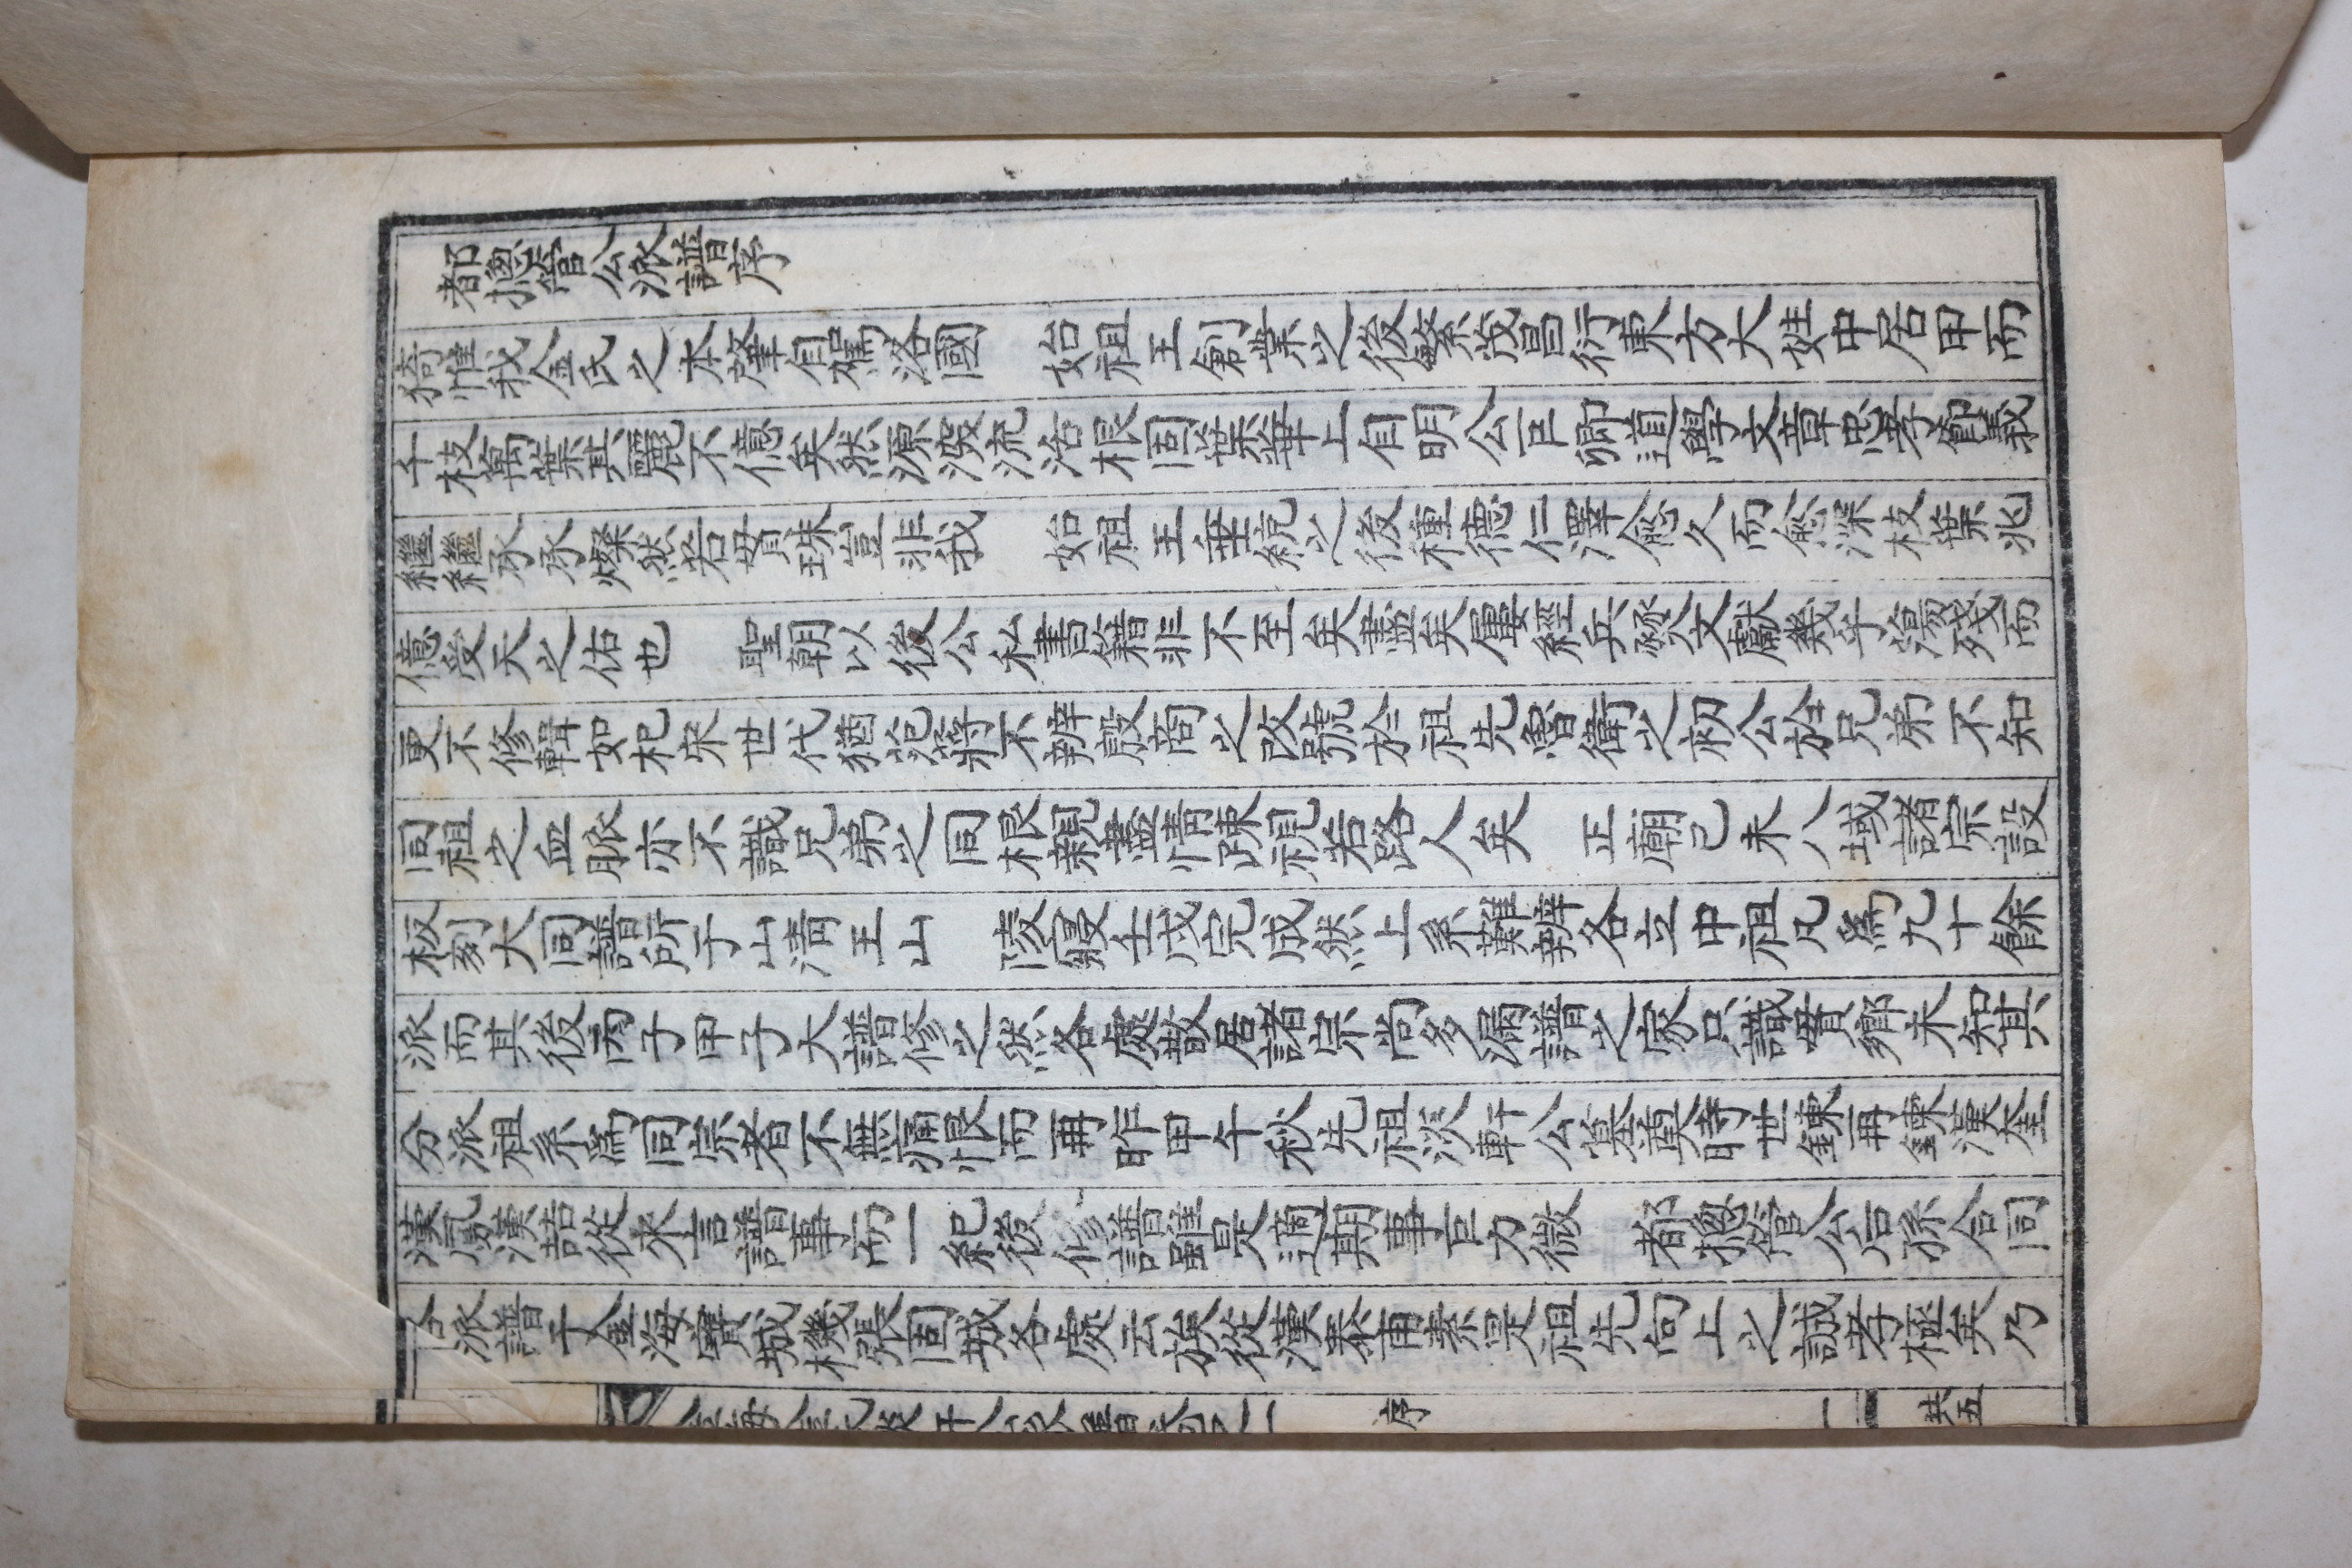 都摠管公派譜序
猗惟我金氏之本肇自駕洛國 始祖王創業之後繁茂昌衍東方大姓中居甲而
千枝萬葉其麗不億矣然源深流活根固葉華上自明公巨卿道學文章忠孝節義
繼繼承承燦然若貫珠豈非我 始祖王垂統之後種德仁澤愈久而愈深枝葉兆
億受天之佑也 聖朝以後公私書籍非不至矣盡矣屢經兵燹文獻幾乎湯殘而
更不修輯如杞宋世代猶泯將不辨殷商之改號於祖先魯衛之初公於兄弟不知
同祖之血脉亦不識兄弟之同根親盡情踈視若路人矣 正廟己未八域諸宗設
板刻大同譜所于山淸王山 陵寢壬戌完成然上系難辨各立中祖凡爲九十餘
派而其後丙子甲子大譜修之然各處散居諸宗尙多漏譜之家只識貫鄕未知其
分派祖系爲同宗者不無痛恨而再昨甲午秋先祖淡軒公墓奠時世鍊再鍊漢奎
漢鳳漢喆從來言譜事而一紀後修譜雖是適期事巨力微 都摠管公后孫合同
合派譜于金海寶城機張固城各處云族從漢泰甫素是祖先向上之誠孝極矣乃
金海金氏淡軒公派譜卷之一 序 一 共五